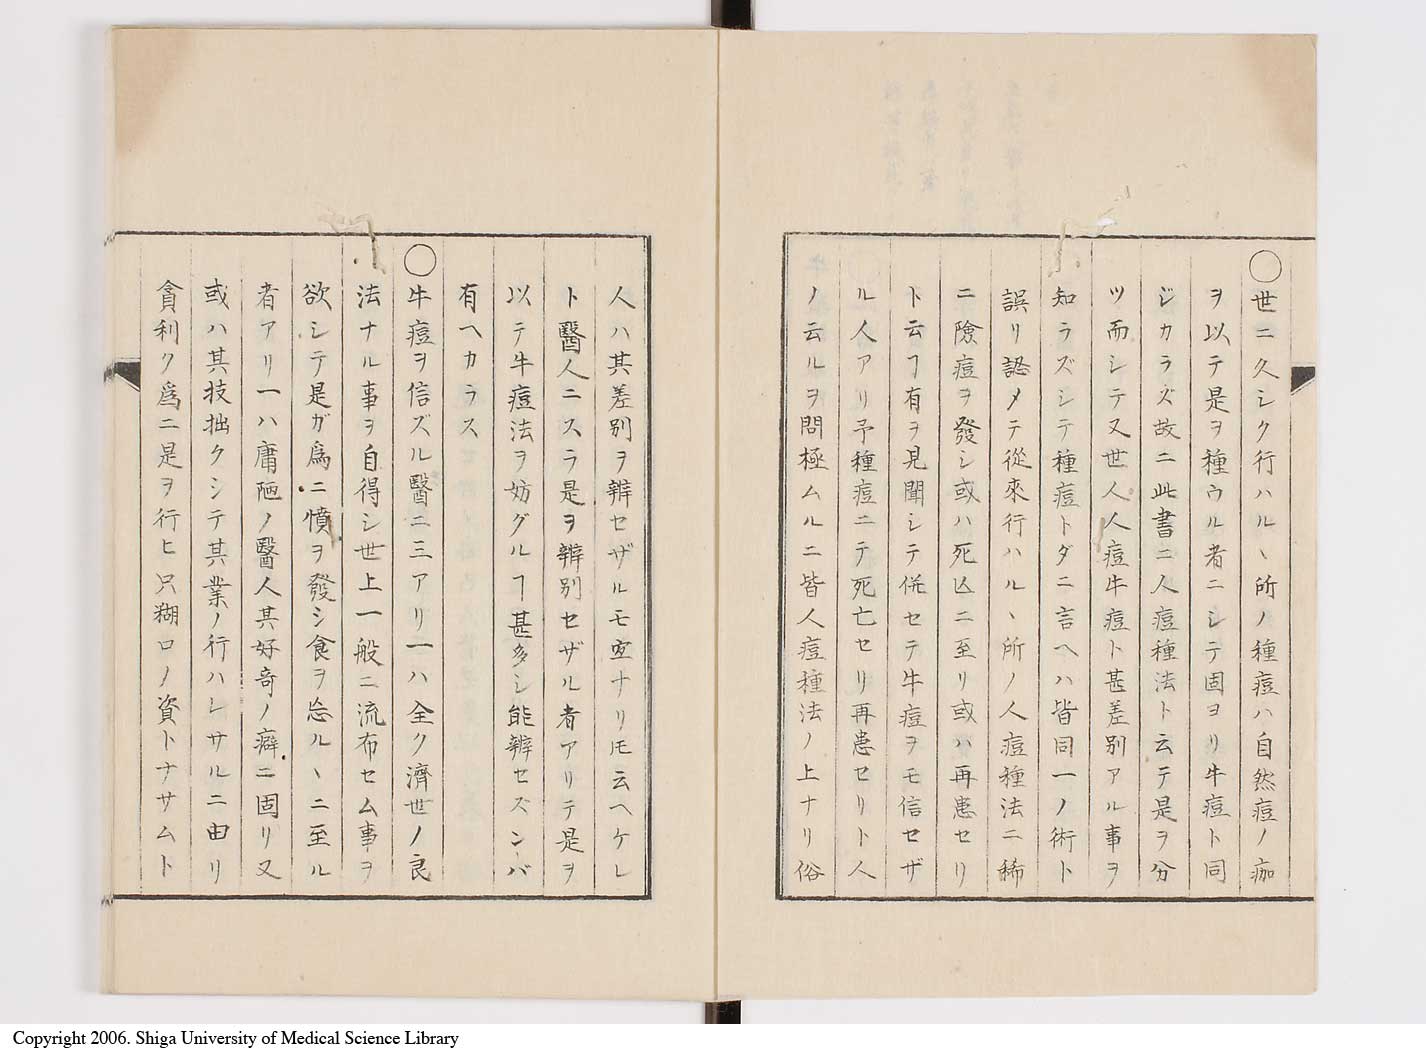 〇世ニ久シク行ハルヽ所ノ種痘ハ自然痘ノ痂
ヲ以テ是ヲ種ウル者ニシテ固ヨリ牛痘ト同
ジカラズ故ニ此書ニ人痘種法ト云テ是ヲ分
ツ而シテ又世人人痘牛痘ト甚差別アル事ヲ
知ラズシテ種痘トダニ言ヘハ皆同一ノ術ト
誤リ認メテ從來行ハルヽ所ノ人痘種法ニ稀
ニ險痘ヲ發シ或ハ死亡ニ至リ或ハ再患セリ
ト云ヿ有ヲ見聞シテ併セテ牛痘ヲモ信セザ
ル人アリ予種痘ニテ死亡セリ再患セリト人
ノ云ルヲ問極ムルニ皆人痘種法ノ上ナリ俗
人ハ其差別ヲ辨セザルモ宜ナリ𪜈云ヘケレ
ト醫人ニスラ是ヲ辨別セザル者アリテ是ヲ
以テ牛痘法ヲ妨グルヿ甚多シ能辨セズンバ
有ヘカラス
〇牛痘ヲ信ズル醫ニ三アリ一ハ全ク濟世ノ良
法ナル事ヲ自得シ世上一般ニ流布セム事ヲ
欲シテ是ガ爲ニ憤ヲ發シ食ヲ忘ルヽニ至ル
者アリ一ハ庸陋ノ醫人其好奇ノ癖ニ固リ又
或ハ其技拙クシテ其業ノ行ハレサルニ由リ
貪利ク爲ニ是ヲ行ヒ只糊口ノ資トナサムト
Copyright 2006. Shiga University of Medical Science Library